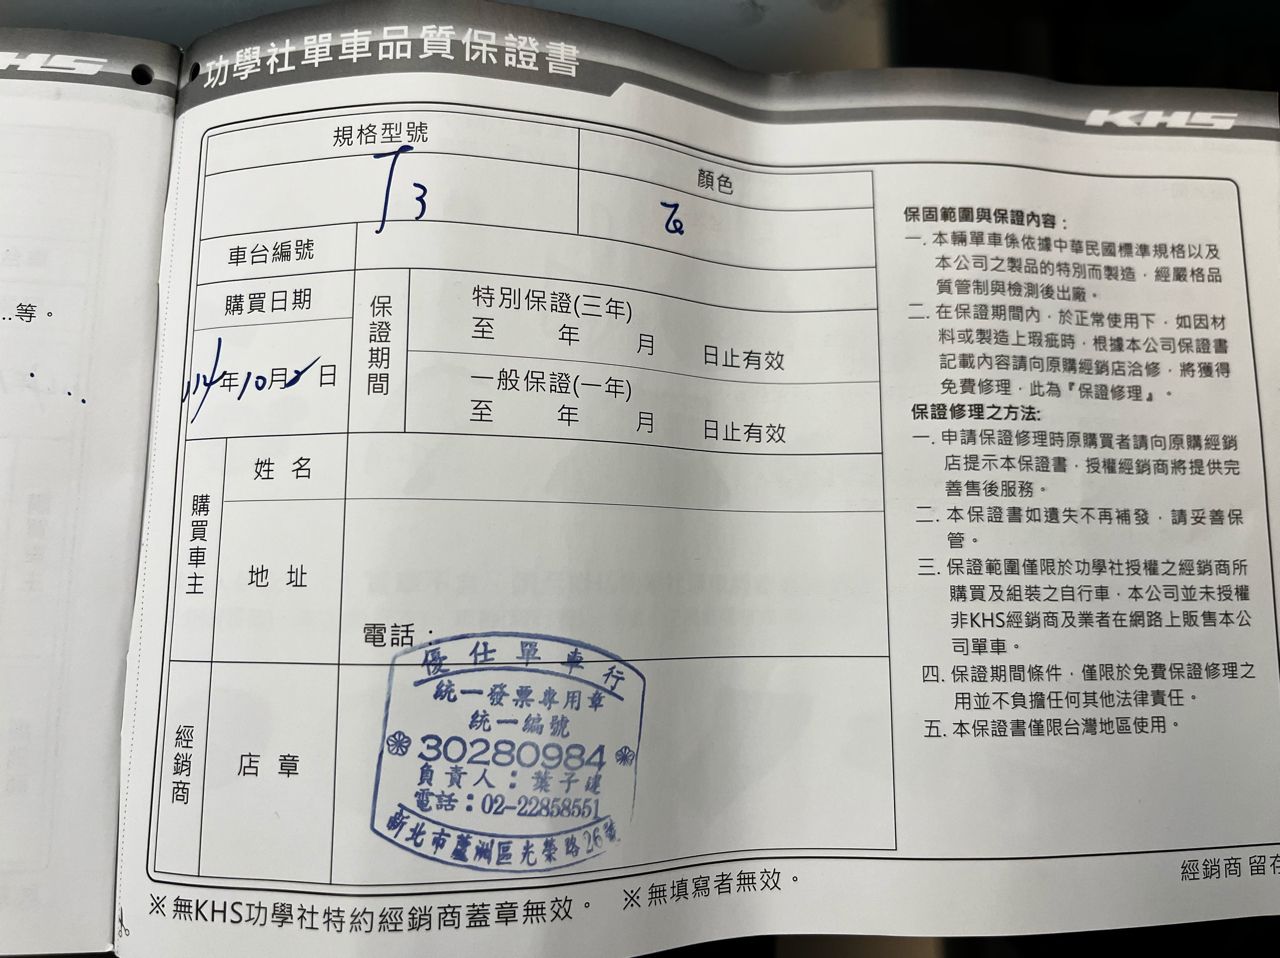 KHS
...等。
功學社單車品質保證書
KHS
規格型號
顏色
T3
車台編號
購買日期
保證期間
特別保證(三年)
至 年 月 日止有效
114年10月 日
一般保證(一年)
至 年 月 日止有效
購買車主
姓名
地址
電話：
經銷商
店章
優仕單車行
統一發票專用章
統一編號
30280984
負責人：葉子建
電話：02-22858551
新北市蘆洲區光榮路26號
※無KHS功學社特約經銷商蓋章無效。 ※無填寫者無效。
保固範圍與保證內容：
一. 本輛單車係依據中華民國標準規格以及
本公司之製品的特別而製造，經嚴格品
質管制與檢測後出廠。
二. 在保證期間內，於正常使用下，如因材
料或製造上瑕疵時，根據本公司保證書
記載內容請向原購經銷店洽修，將獲得
免費修理，此為『保證修理』。
保證修理之方法:
一. 申請保證修理時原購買者請向原購經銷
店提示本保證書，授權經銷商將提供完
善售後服務。
二. 本保證書如遺失不再補發，請妥善保
管。
三. 保證範圍僅限於功學社授權之經銷商所
購買及組裝之自行車，本公司並未授權
非KHS經銷商及業者在網路上販售本公
司單車。
四. 保證期間條件，僅限於免費保證修理之
用並不負擔任何其他法律責任。
五. 本保證書僅限台灣地區使用。
經銷商 留存